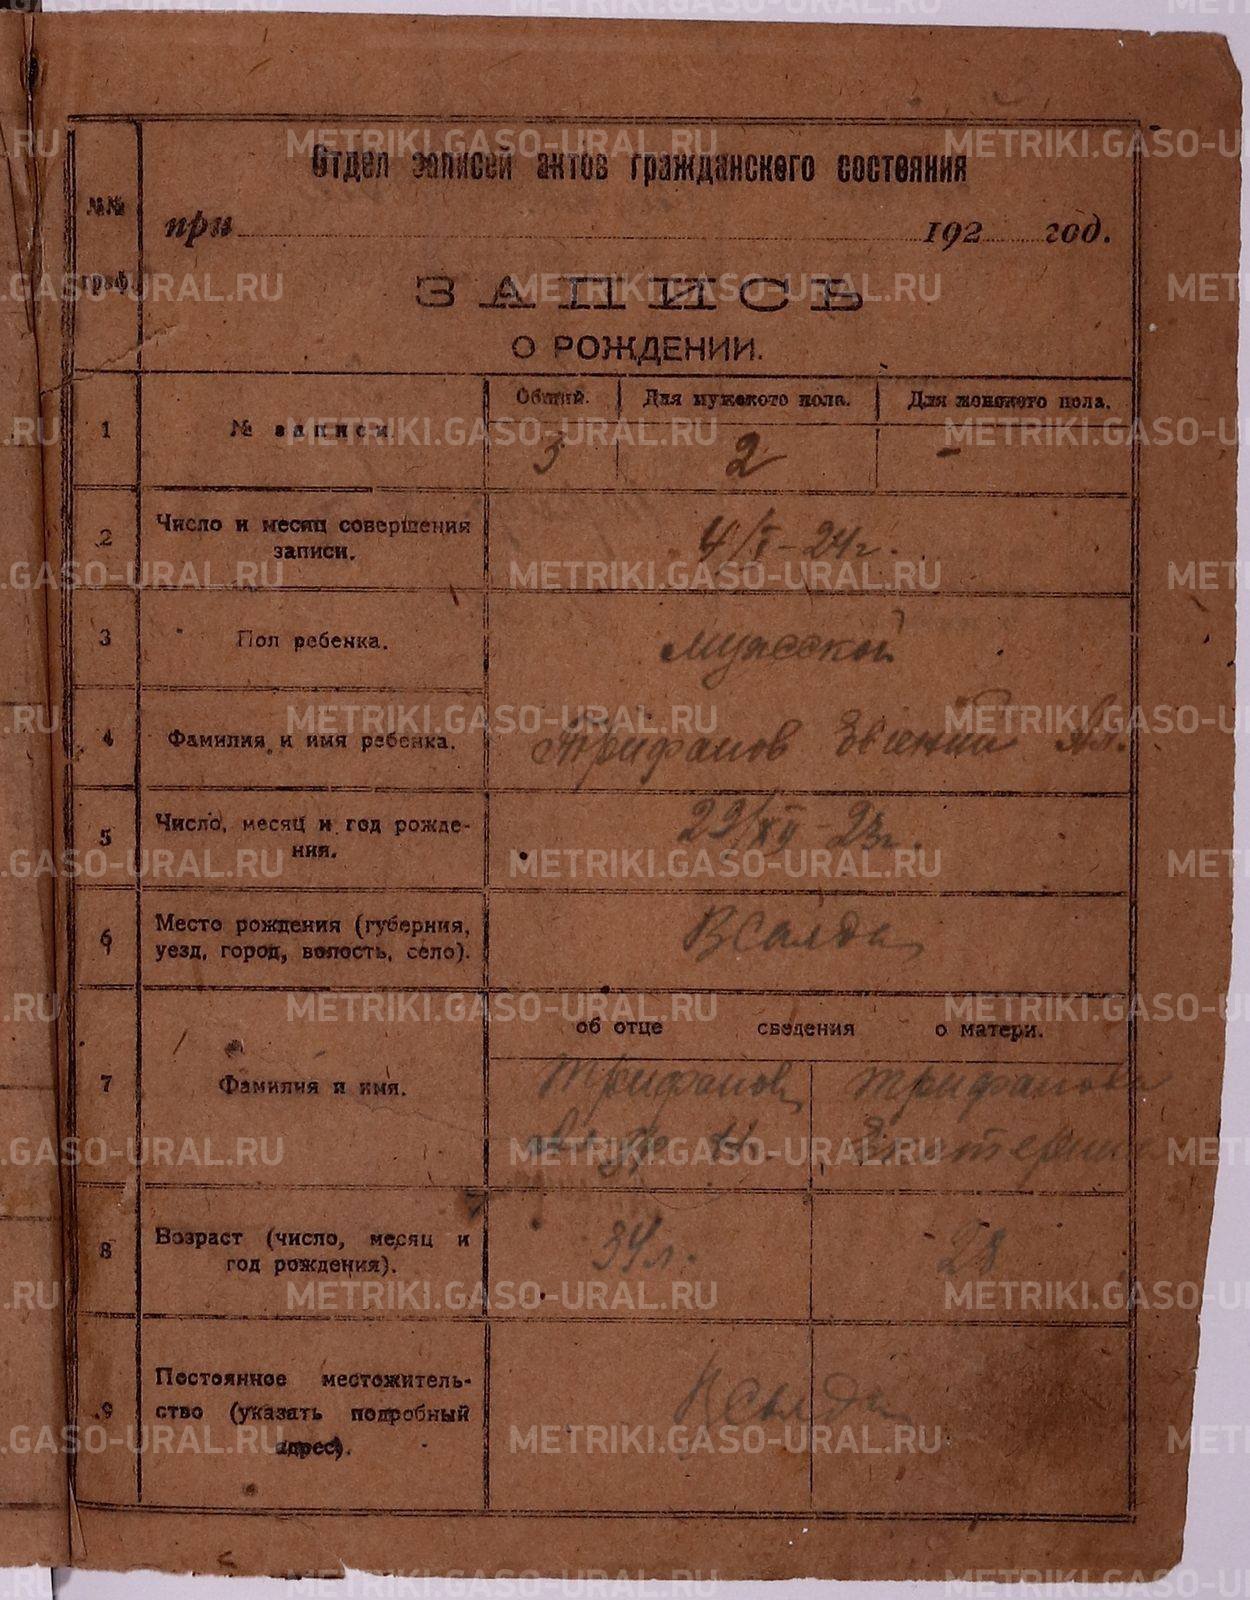 Отдел записей актов гражданского состояния
№№ граф.
при 192 год.
ЗАПИСЬ
О РОЖДЕНИИ.
Общий. Для мужского пола. Для женского пола.
1 № записи. 3 2 -
2 Число и месяц совершения
записи. 4/I-24г.
3 Пол ребенка. мужской
4 Фамилия и имя ребенка. Трифанов Евгений Ал.
5 Число, месяц и год рожде-
ния. 29/XII-23г.
6 Место рождения (губерния,
уезд, город, волость, село). В Салда
об отце сведения о матери.
7 Фамилия и имя. Трифанов Трифанова
Екатерина
8 Возраст (число, месяц и
год рождения). 34 л. 28
9 Постоянное местожитель-
ство (указать подробный
адрес). В Салда
METRIKI.GASO-URAL.RU